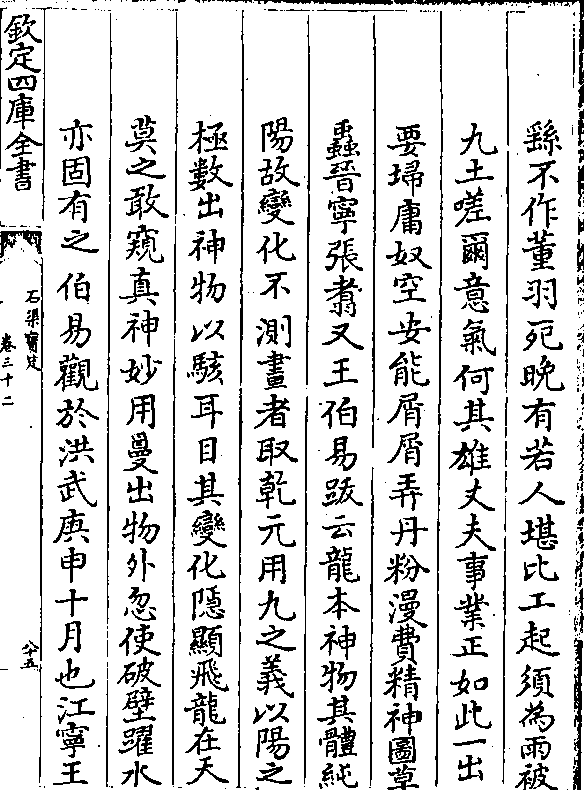 繇不作董羽死晚有若人堪比工起須為雨被
九土嗟爾意氣何其雄丈夫事業正如此一出
要埽庸奴空安能屑屑弄丹粉漫費精神圖草
蟲晉寧張翥又王伯易跋云龍本神物其體純
陽故變化不測畫者取乾元用九之義以陽之
極數出神物以駭耳目其變化隱顯飛龍在天
莫之敢窺真神妙用敻出物外忽使破壁躍水
亦固有之伯易觀於洪武庚申十月也江寧王
欽定四庫全書
石渠寶笈
卷三十二
八十五